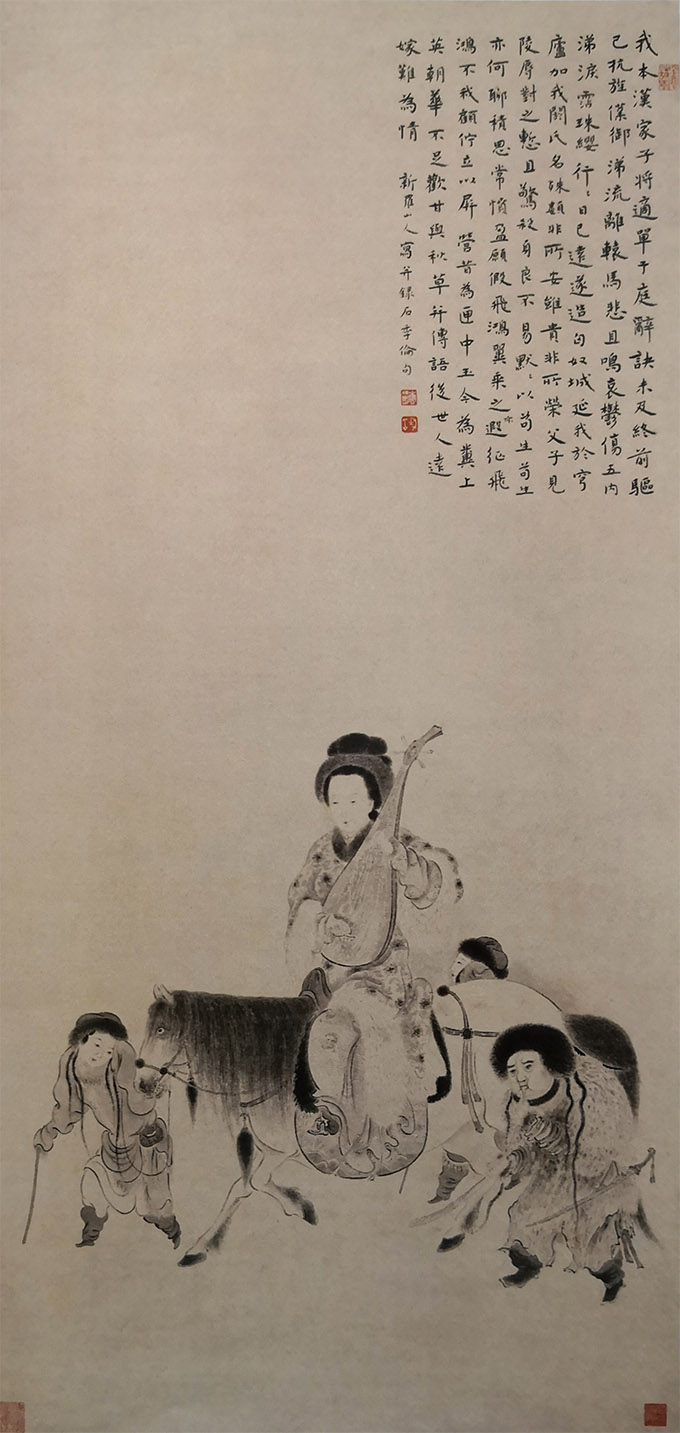 我本漢家子將適單于庭辭訣未及終前驅
已抗旌僕御涕流離轅馬悲且鳴哀鬱傷五内
涕淚霑珠纓行〻日已遠遂造匈奴城延我於穹
廬加我閼氏名殊類非所安雖貴非所榮父子見
陵辱對之慙且驚殺身良不易默〻以苟生苟生
亦何聊積思常憤盈願假飛鴻翼乘之以遐征飛
鴻不我顧佇立以屏營昔為匣中玉今為糞上
英朝華不足歡甘與秋草并傳語後世人遠
嫁難為情 新羅山人寫并錄石季倫句